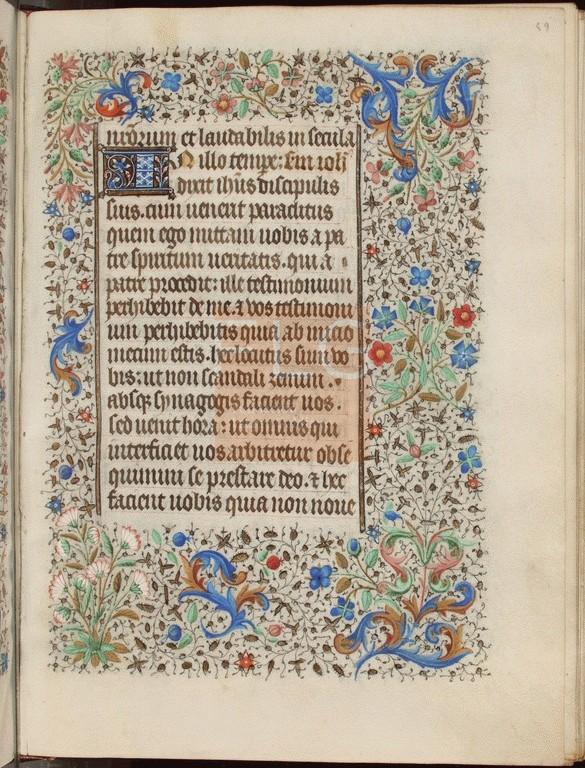 59
nuorum et laudabilis in secula
In illo tempe: Em. xoli
dixit ihūs discipulis
suis. cum uenerit paraclitus
quem ego mittam uobis a pa
tre spiritum ueritatis. qui a
patre procedit: ille testimonium
perhybebit de me. ⁊ vos testimoni
um perhybebitis quia ab inicio
mecum estis. hec locutus sum vo
bis: ut non scandali zemini.
absqꝫ synagogis facient uos.
sed uenit hora: ut omnis qui
interficiet uos arbitretur obse
quium se prestare deo. ⁊ hec
facient uobis quia non noue